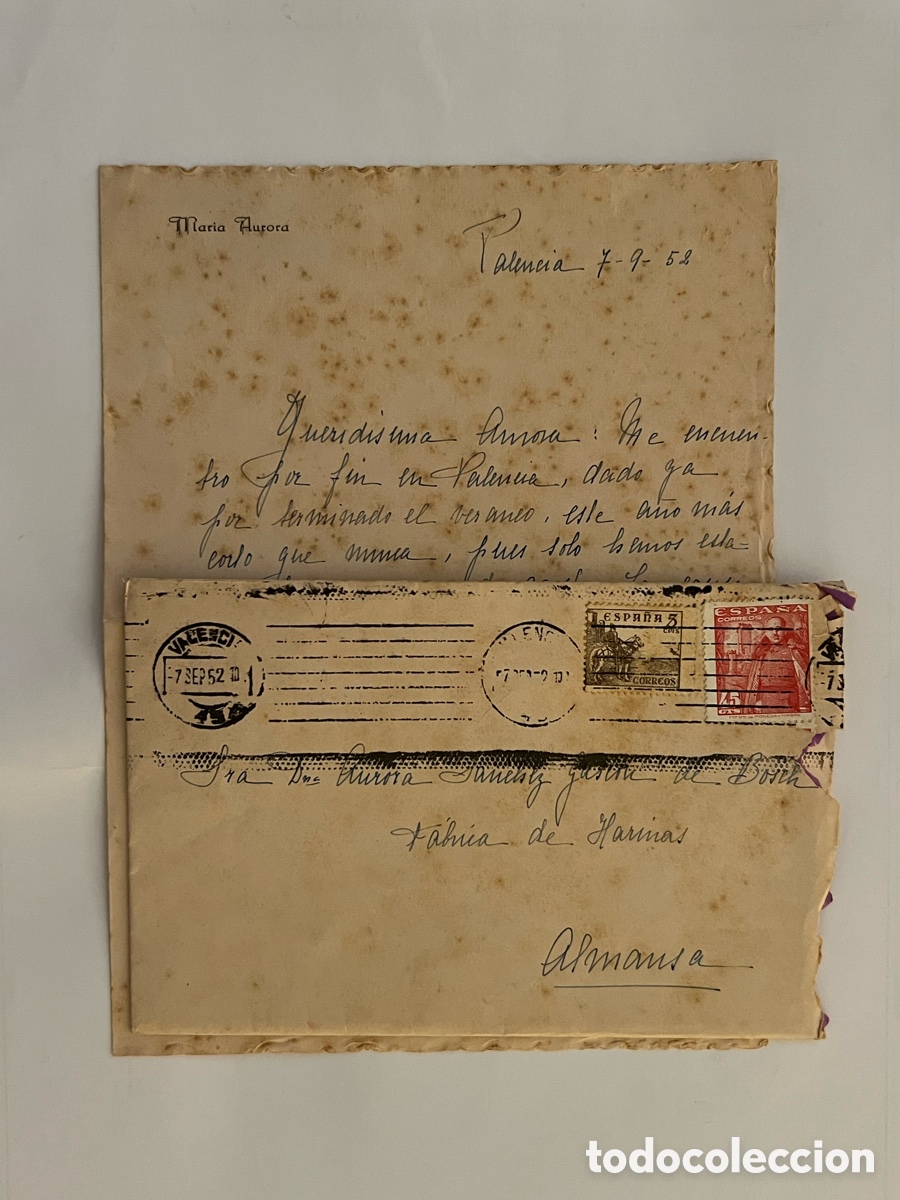 Maria Aurora
Valencia 7-9-52
Queridisima Aurora: Me encuen-
tro por fin en Valencia, dado ya
por terminado el veraneo, este año más
corto que nunca, pues solo hemos esta-
VALENCI
-7 SEP 52 10
ESPAÑA 5
CTS
CORREOS
ESPAÑA
CORREOS
45
Sra Dña Aurora Sanchez Gascon de Bosch
Fábrica de Harinas
Almansa
todocoleccion